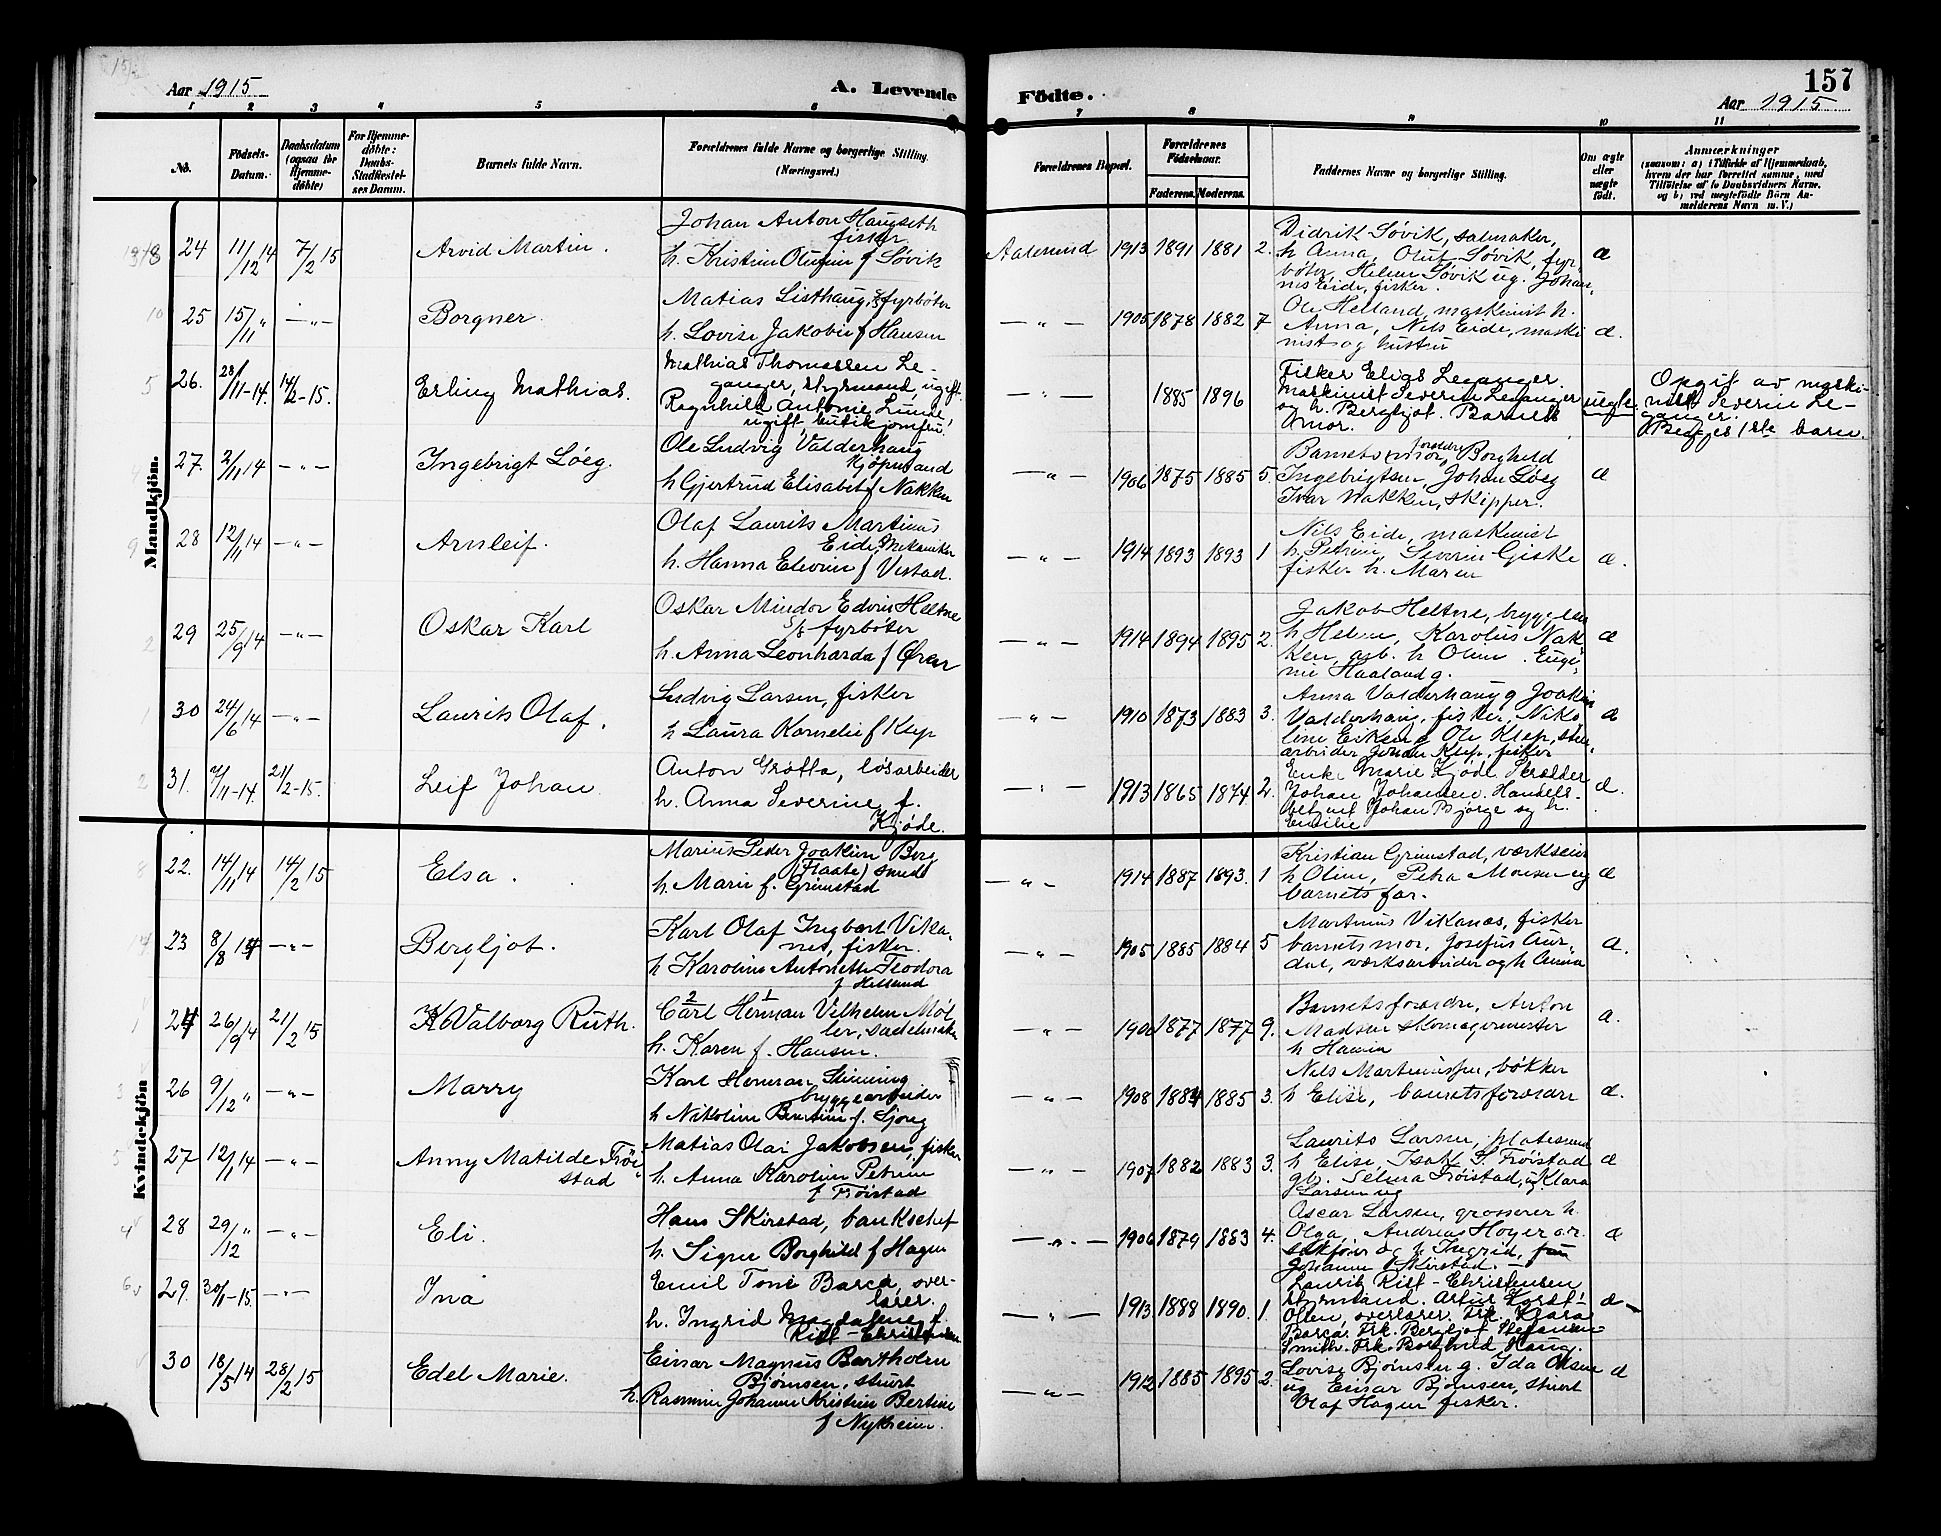 Aar 1915
A. Levende
Födte.
157
Aar 1915
1 2 3 4 5 6 7 8 9 10 11
No.
Födsels-
Datum.
Daabsdatum
(ogsaa for
Hjemme-
döbte)
For Hjemme-
döbte:
Daabs-
Stadfæstel-
ses Datum.
Barnets fulde Navn.
Forældrenes fulde Navne og borgerlige Stilling.
(Næringsvei.)
Forældrenes Bopæl.
Forældrenes
Födselsaar.
Faderens. Moderens.
Faddernes Navne og borgerlige Stilling.
Om ægte
eller
uægte
födt.
Anmærkninger
(saasom: a) i Tilfælde af Hjemmedaab,
hvem der har forrettet samme, med
Tilföielse af to Daabsvidners Navne,
og b) ved uægtefödte Börn An-
melderens Navn m. V.)
Mandkjön.
24 11/12 14 7/2 15 Arvid Martin.
Johan Anton Haugseth
fisker
h. Kristine Oluffine f Søvik
Aalesund 1913 1891 1881 2.
Didrik Søvik, salmaker,
h Anna, Oluf Søvik, fyr-
bøter, Helene Søvik ug. Johan-
nes Eide, fisker.
æ
25 15/11 " — " — Borgner.
Matias Listhaug, fyrbøter
h. Lovise Jakobie f Hansen
— " — 1905 1878 1882 7
Ole Helland, maskinist h.
Anna, Nils Eide, maski
nist og hustru
æ.
26. 28/11-14. 14/2-15. Erling Mathias.
Mathias Thomassen Le-
ganger, styrmand, ugift.
Ragnhild Antonie Lunde,
ugift, butikjomfru.
— " — 1885 1896
Fisker Elias Leganger.
Maskinist Severin Leganger
og h. Bergljot. Barnets
mor.
uegte
Opgit av maski-
nist Severin Le-
ganger.
Begges 1ste barn.
27. 2/11 14 — " — Ingebrigt Løeg.
Ole Ludvig Valderhaug
Kjøpmand
h Gjertrud Elisabet f Nakken
— " — 1906 1875 1885 5.
Barnets mor, Borghild
Ingebrigtsen, Johan Løeg
Ivar Nakken, skipper.
æ
28 12/11 14 — " — Arnleif.
Olaf Laurits Martinus
Eide, Mekaniker
h. Hanna Elevine f Vestad.
— " — 1914 1893 1893 1
Nils Eide, maskinist
h. Petrine, Severin Giske
fisker h. Maren
æ.
29 25/9 14 — " — Oskar Karl
Oskar Mindor Edvin Heltne
s/s fyrbøter
h. Anna Leonharda f Ørar
— " — 1914 1894 1895 2.
Jakob Heltne,
h Helene, Karolus Nak
ken, arb. h Oline. Euge-
nie Haaland g.
æ
30 24/6 14 — " — Laurits Olaf.
Ludvig Larsen, fisker
h Laura Kornelie f Klep
— " — 1910 1873 1883 3.
Anna Valderhaug g Joakim
Valderhaug, fisker, Niko
line Eiken g Ole Klep,
arbeider Johan Klep, fisker
æ
31. 7/11-14. 21/2-15. Leif Johan
Anton Grøtta, løsarbeider
h. Anna Severine f.
Kjøde.
— " — 1913 1865 1874 2.
Enke Marie Kjøde Skrædder
Johan Johansen. Handels-
betjent Johan Bjørge og h.
Emilie
æ.
Kvindekjön
22. 14/11 14 14/2 15 Elsa.
Marius Peder Joakim Berg
(Flaate) smed
h. Marie f. Grimstad
— " — 1914 1887 1893. 1
Kristian Grimstad, værkseier
h Oline, Petra Monsen ug
barnets far.
æ
23 8/8 14 — " — Bergljot.
Karl Olaf Ingbert Vika-
nes, fisker.
h Karoline Antonette Teodora
f Helland
— " — 1905 1885 1884 5
Martinus Vikanæs, fisker
barnets mor, Josefus Aur-
dal, værksarbeider og h Anna
æ.
24 26/9 14 21/2 15 Valborg Ruth.
Carl Herman Vilhelm Møl
ler, sadelmaker
h. Karen f. Hansen.
— " — 1900 1877 1877 9.
Barnets forældre, Anton
Madsen skomagermester
h Hanna
æ.
26 9/12 " — " — Marry
Karl Herman Slinning
bryggearbeider
h Nikoline Bentine f. Sjong
— " — 1908 1884 1885 3.
Nils Martinussen, bøkker
h Elise, barnets forældre
æ.
27 12/1 14 — " — Anny Matilde Frøi
stad
Matias Olai Jakobsen, fisker
h. Anna Karoline Petrine
f Frøistad
— " — 1907 1882 1883 3.
Laurits Larsen,
h Elise, Isak S. Frøistad
gb. Selma Frøistad, ug Klara
Larsen ug
æ
28 29/12 " — " — Eli.
Hans Skirstad, bankchef
h. Signe Borghild f Hagen
— " — 1906 1879 1883 4.
Oscar Larsen, grosserer h.
Olga, Andreas Høyer o.r.
sakfører og h Ingrid,
Johanne Skirstad.
æ
29. 30/11-15. — " — Ina
Emil Toni Barca, over-
lærer.
h. Ingrid Magdalene f.
Rist-Christensen
— " — 1913 1888 1890. 1.
Laurits Rist-Christensen
styrmand. Artur
Olsen, overlærer. Frk. Klara
Barca. Frk. Bergljot
Smith. Frk. Borghild Haug.
æ
30 18/5 14 28/2 15 Edel Marie.
Einar Magnus Bartholm
Bjørnsen, stuert
h. Rasmine Johanne Kristine Bertine
f Nykreim.
— " — 1912 1885 1895 2.
Lovise Bjørnsen g. Ida Olsen
ug Einar Bjørnsen, stuert
Olaf Hagen fisker.
æ